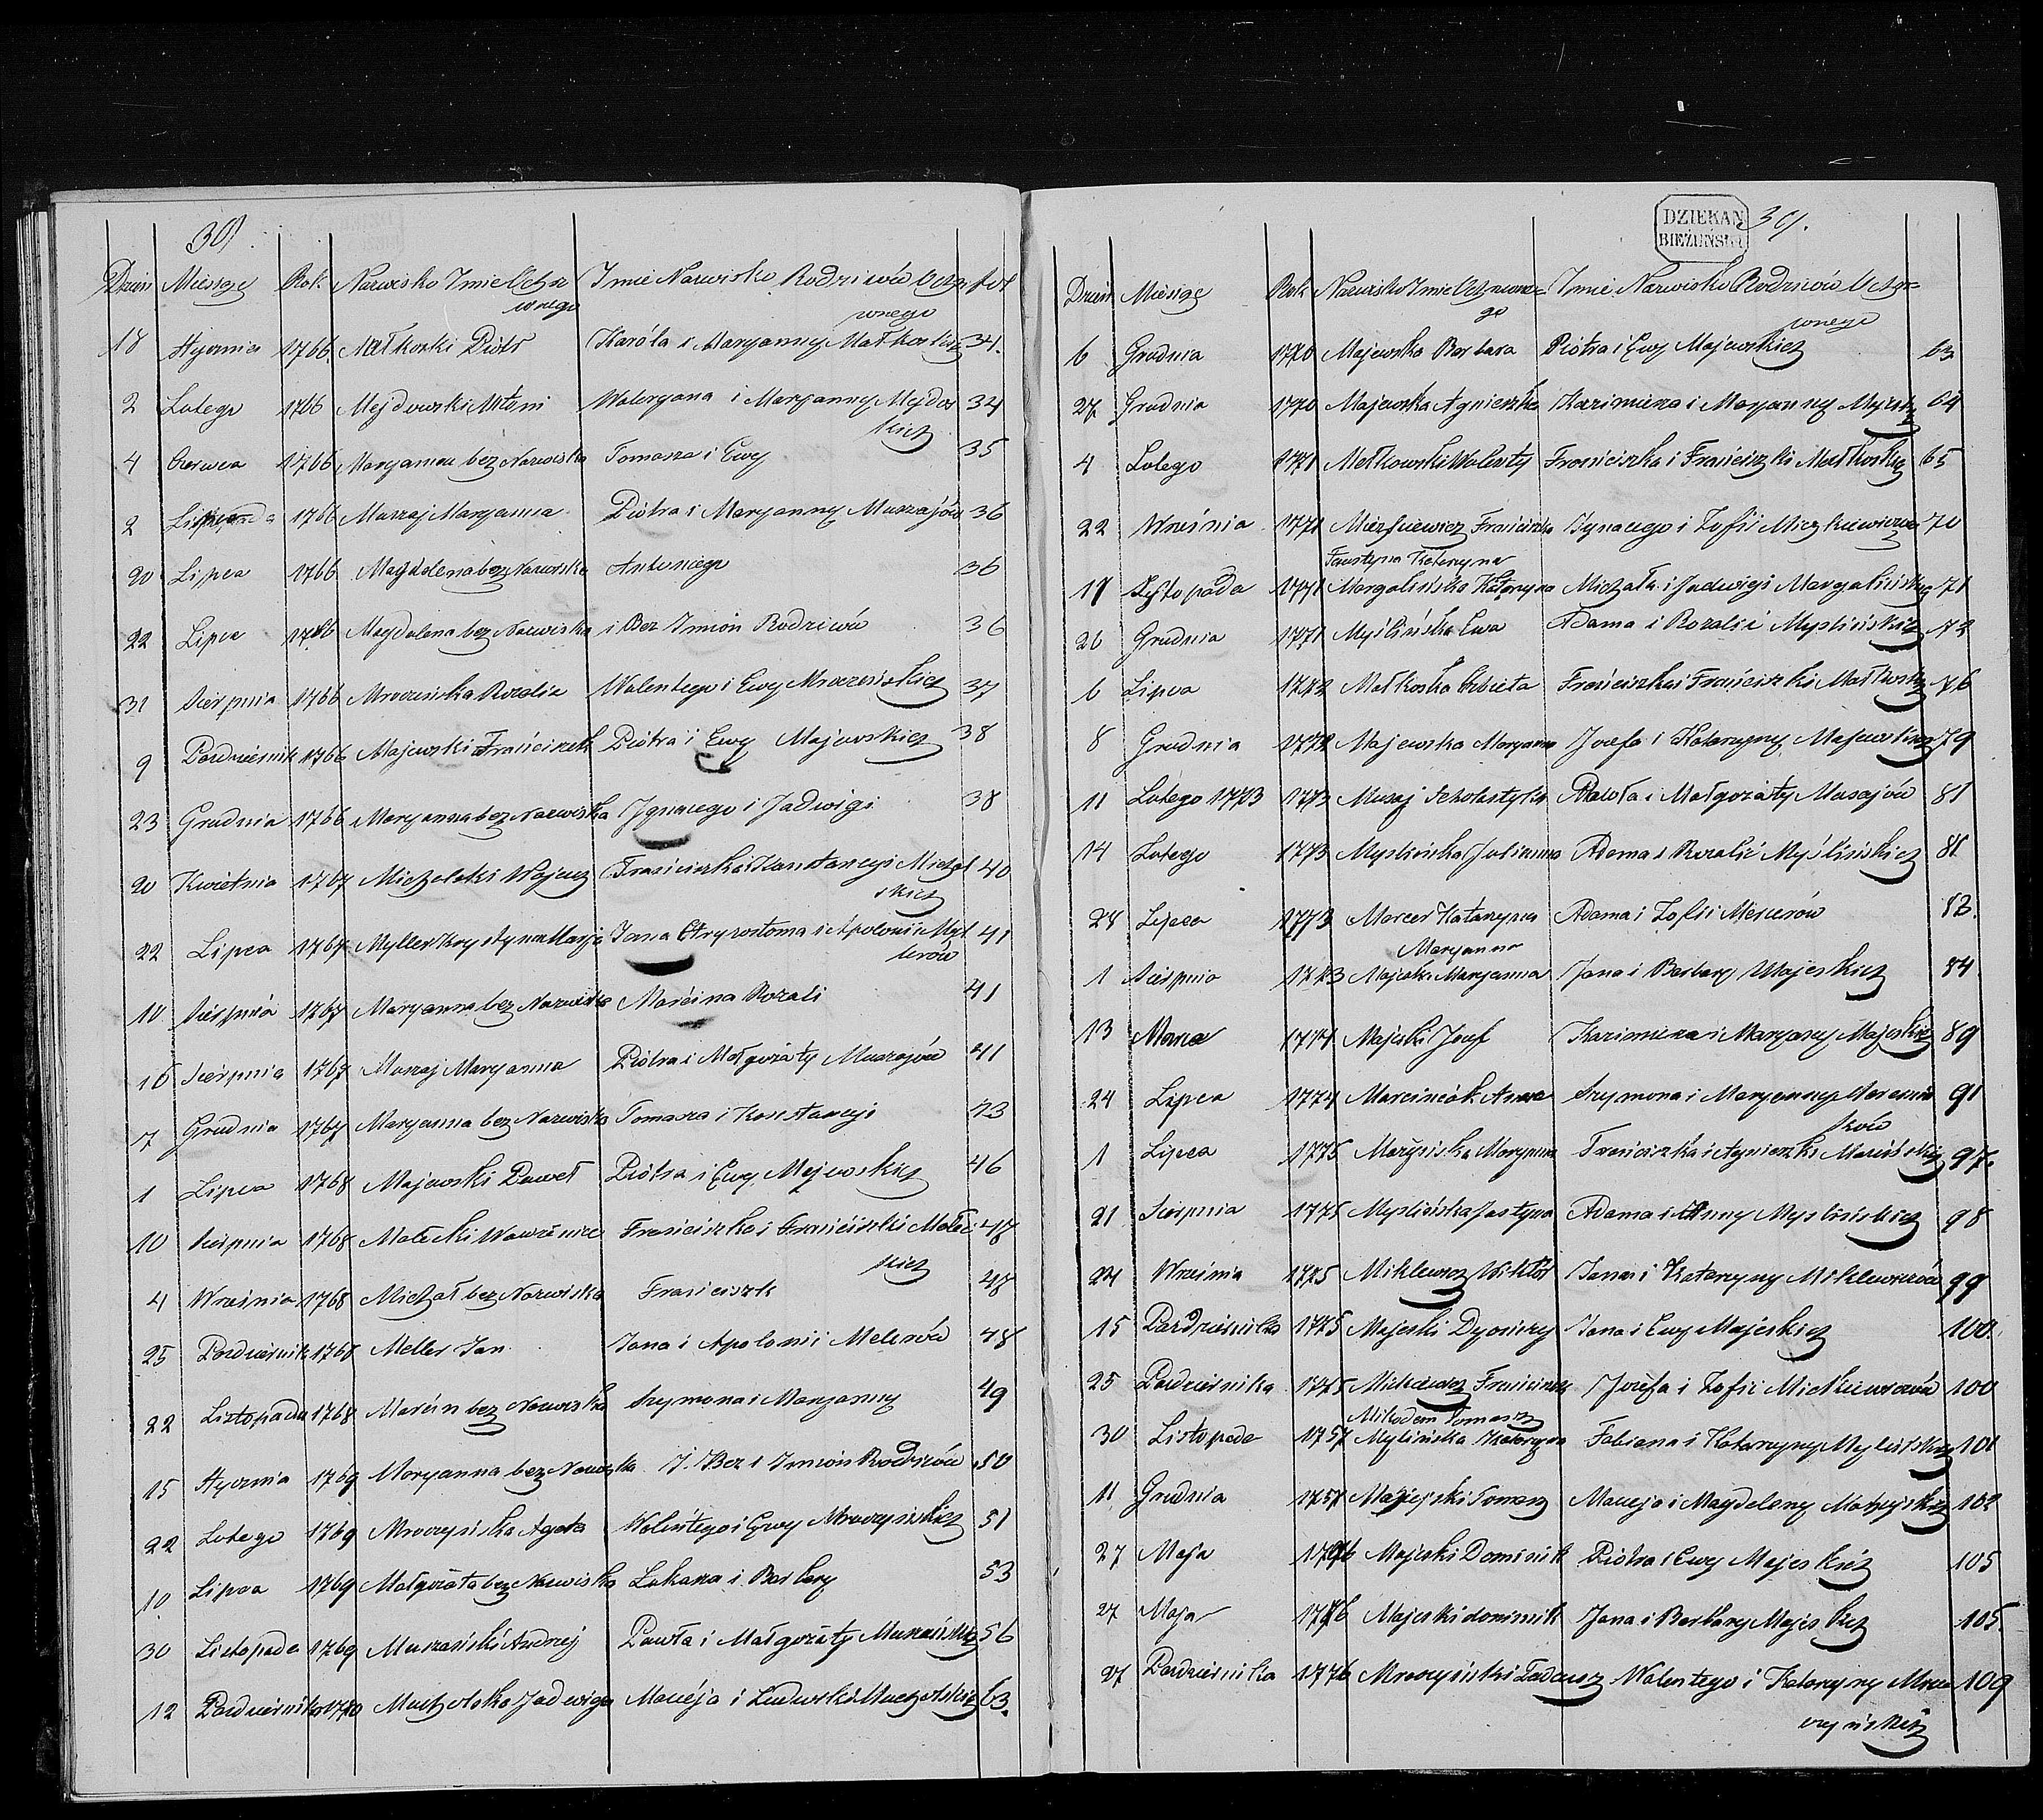 30
Dzień Miesiąc Rok Nazwisko Imie Ochrz Imie Nazwisko Rodziców Ochrz fol
conego conego
18 Stycznia 1766 Małkoski Piotr Karóla i Maryanny Małkoskich 34.
2 Lutego 1766 Mejdowski Waleryana i Maryanny Mejdos 34
kich
4 Czerwca 1766 Maryanna bez Nazwiska Tomasza i Ewy 35
2 1766 Muszaj Maryanna Piotra i Maryanny Muszajów 36
20 Lipca 1766 Magdalena bez Nazwiska Antoniego 36
22 Lipca 1766 Magdalena bez Nazwiska i Bez Imion Rodziców 36
31 Sierpnia 1766 Mroczińska Rozalia Walentego i Ewy Mroczińskich 37
9 Pazdziernik 1766 Majewski Franciszek Piotra i Ewy Majewskich 38
23 Grudnia 1766 Maryanna bez Nazwiska Ignacego i Jadwigi 38
20 Kwietnia 1767 Michalski Wojciech Franciszka i Konstancyi Michal 40
skich
22 Lipca 1767 Myller Krystyna Marja Jana Chryzostoma i Apolonii Myl 41
lerów
10 Sierpnia 1767 Maryanna bez Nazwiska Marcina Rozali 41
16 Sierpnia 1767 Muszaj Maryanna Piotra i Małgorzaty Muszajów 41
7 Grudnia 1767 Maryanna bez Nazwiska Tomasza i Konstancyi 43
1 Lipca 1768 Majewski Paweł Piotra i Ewy Majewskich 46
10 Sierpnia 1768 Małecki Wawrzeniec Franciszka i Franciszki Małec 47
kich
4 Wrzesnia 1768 Michał bez Nazwiska Franciszk 47
25 Pazdziernik 1768 Meller Jan Jana i Apolonii Melerów 48
22 Listopada 1768 Marcin bez Nazwiska Szymona i Maryanny 49
15 Stycznia 1769 Maryanna bez Nazwiska i. Bez i Imion Rodziców 50
22 Lutego 1769 Mroczyńska Agata Walentego i Ewy Mroczyńskich 51
10 Lipca 1769 Małgorzata bez Nazwiska Łukasza i Barbary 53
30 Listopada 1769 Muszański Andrzej Pawła i Małgorzaty Muszańskich 56
12 Pazdziernika 1770 Mucholska Jadwiga Macieja i Ludwiki Mucholskich 63.
DZIEKAN
BIEŻUŃSKI
31.
Dzień Miesiąc Rok Nazwisko Imie Ochrzcone- Imie Nazwisko Rodziców Ochrz
go conego
6 Grudnia 1770 Majewska Barbara Piotra i Ewy Majewskich 63
27 Grudnia 1770 Majewska Agnieszka Kazimierza i Maryanny 64
4 Lutego 1771 Małkowski Walenty Franciszka i Franciszki Małkoskich 65
22 Wrzesnia 1771 Mieszkiewicz Franciszka Ignacego i Zofii Mieszkiewiczów 70
Faustyna Katarzyna
17 Listopada 1771 Margalińska Katarzyna Michała i Jadwigi Margalińskich 71
26 Grudnia 1771 Myślińska Ewa Adama i Rozalii Myslińskich 72
6 Lipca 1772 Małkoska Elzbieta Franciszka i Franciszki Małkoskich 76
8 Grudnia 1772 Majewska Maryanna Jozefa i Katarzyny Majewskich 79
11 Lutego 1773 1773 Musaj Scholastyka Pawła i Małgorzaty Musajów 81
14 Lutego 1773 Myslińska Julianna Adama i Rozalii Myślińskich 81
28 Lipca 1773 Mercer Katarzyna Adama i Zofii Mercerów 83.
Maryanna
1 Sierpnia 1773 Majeska Maryanna Jana i Barbary Majeskich 84
13 Marca 1774 Majeski Jozef Kazimierza i Maryanny Majeskich 89
24 Lipca 1774 Marciniak Anna Szymona i Maryanny Marcinia 91
ków
1 Lipca 1775 Marżyńska Maryanna Franciszka i Agnieszki 97.
21 Sierpnia 1775 Myslińska Justyna Adama i Anny Myslińskich 98
24 Wrzesnia 1775 Miklewicz Wiktór Jana i Katarzyny Miklewiczów 99
15 Pazdziernika 1775 Majeski Dyonizy Jana i Ewy Majeskich 100.
25 Pazdziernika 1775 Mickiewicz Franciszek Jozefa i Zofii Mickiewiczów 100
Nikodem Tomasz
30 Listopada 1757 Mylińska Katarzyna Fabiana i Katarzyny Mylińskich 101
11 Grudnia 1757 Maciejski Tomasz Macieja i Magdaleny Maciejskich 102
27 Maja 1776 Majeski Dominik Piotra i Ewy Majeskich 105
27 Maja 1776 Majeski dominik Jana i Barbary Majeskich 105.
27 Pazdziernika 1776 Mroczyński Tadeusz Walentego i Katarzyny Mro 109
czyńskich